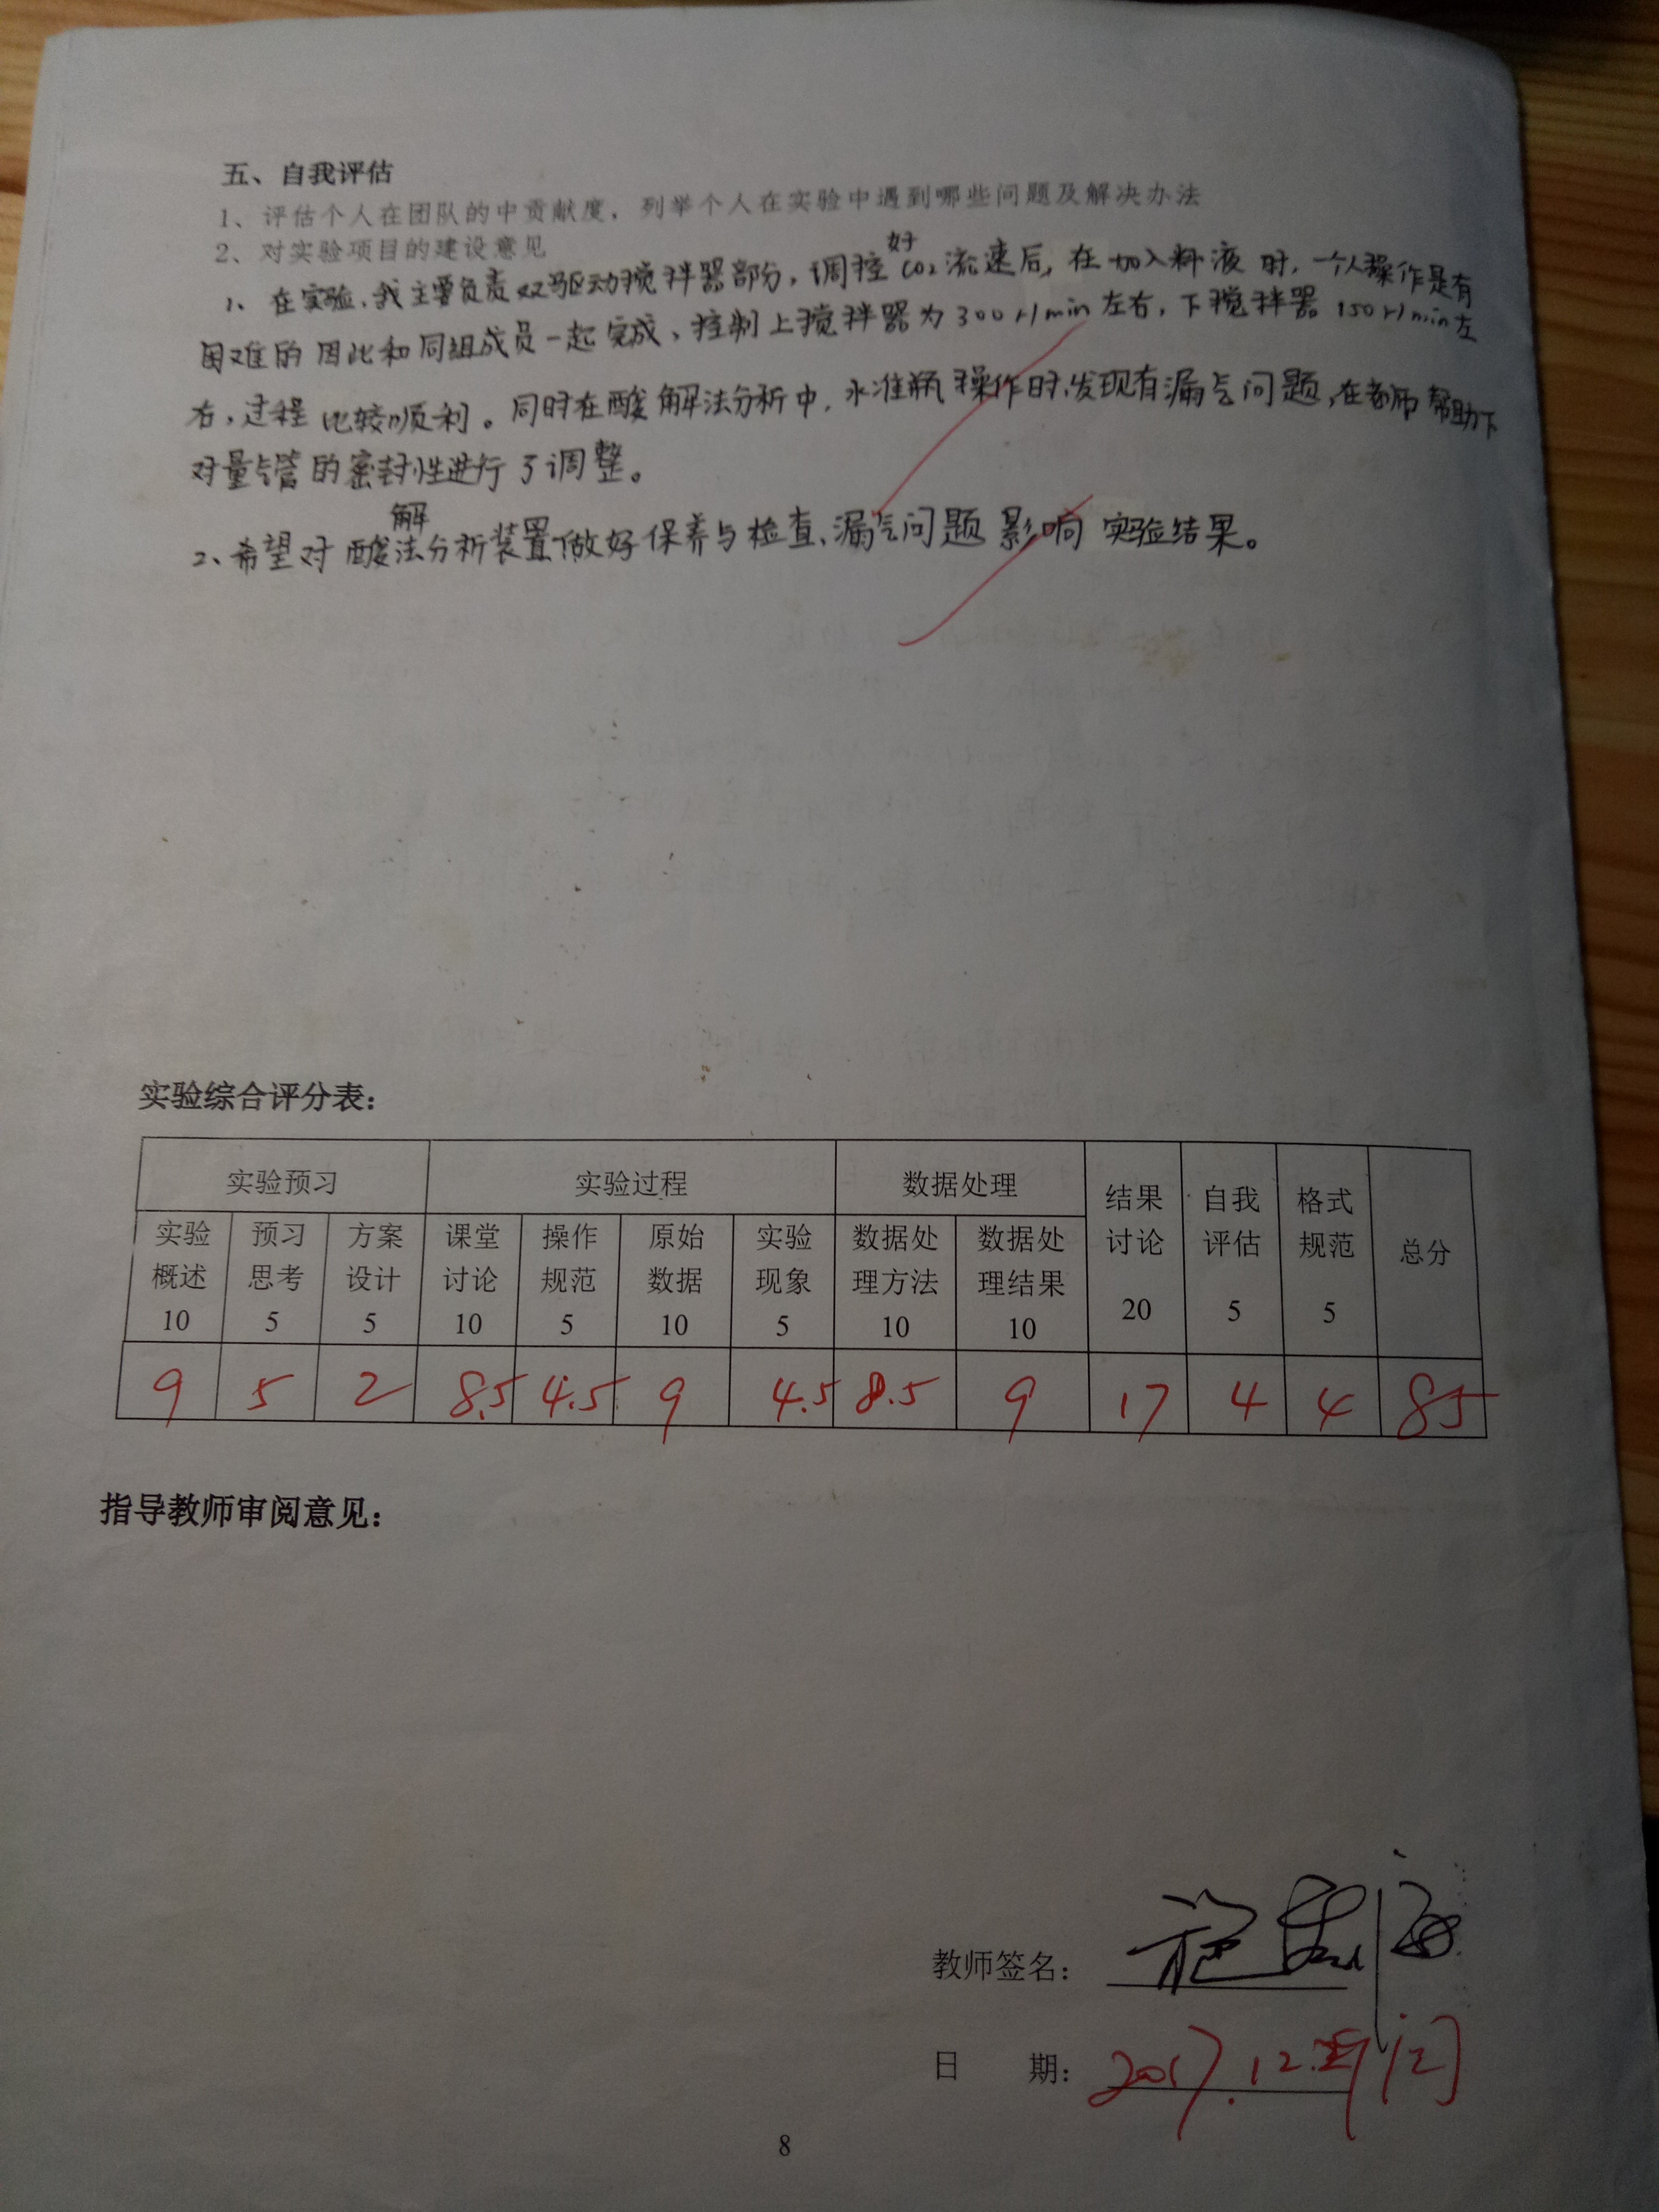 五、自我评估
1、评估个人在团队的中贡献度，列举个人在实验中遇到哪些问题及解决办法
2、对实验项目的建设意见
1、在实验，我主要负责双驱动搅拌器部分，调控好CO2流速后，在加入料液时，一个人操作是有
困难的因此和同组成员一起完成、控制上搅拌器为300r/min左右，下搅拌器150r/min左
右，过程比较顺利。同时在酸解法分析中，水准瓶操作时，发现有漏气问题，在老师帮助下
对量气管的密封性进行了调整。
2、希望对酸解法分析装置做好保养与检查、漏气问题影响实验结果。
实验综合评分表：
实验预习 实验过程 数据处理 结果讨论 20 自我评估 5 格式规范 5 总分
实验概述 10 预习思考 5 方案设计 5 课堂讨论 10 操作规范 5 原始数据 10 实验现象 5 数据处理方法 10 数据处理结果 10
9 5 2 8.5 4.5 9 4.5 8.5 9 17 4 4 85
指导教师审阅意见：
教师签名：
日 期： 2017.12
8